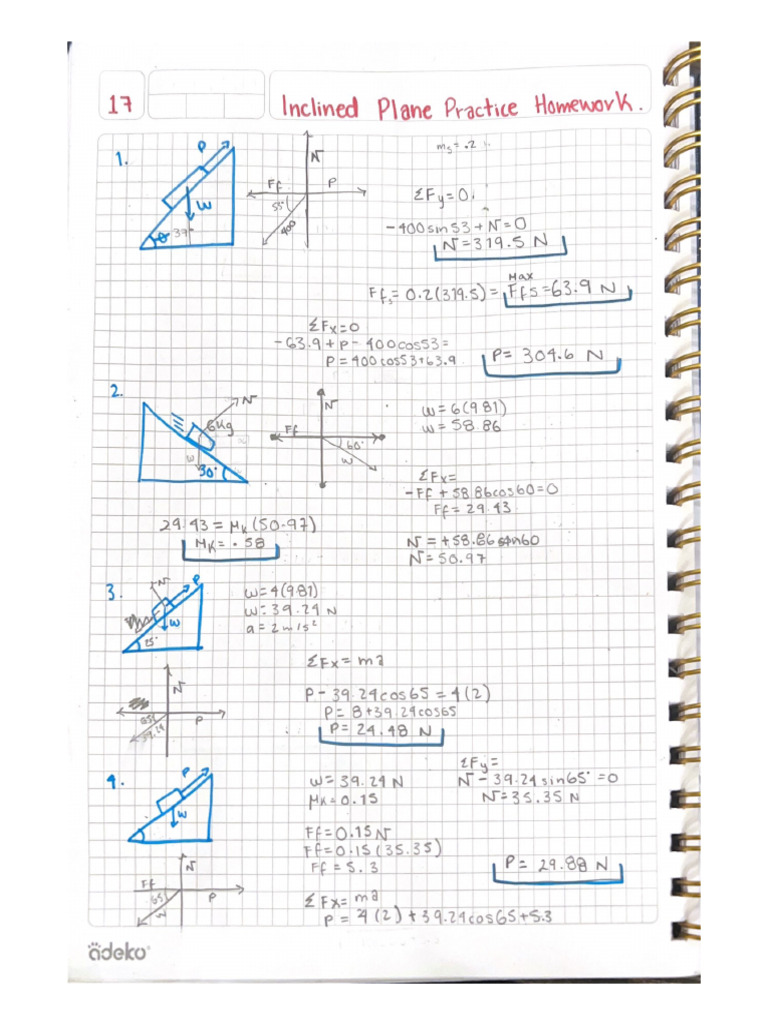 17
Inclined Plane Practice Homework.
1.
P
W
θ 37°
N
Ff
P
55°
400
ms = .2
ΣFy=0
-400sin53+N=0
N=319.5 N
Ffs=0.2(319.5)= Max Ffs=63.9 N
ΣFx=0
-63.9+P-400cos53=
P=400cos53+63.9
P= 304.6 N
2.
N
6Kg
W
30°
N
Ff
60°
W
W=6(981)
W=58.86
ΣFx=
-Ff+58.86cos60=0
Ff=29.43
29.43=Mk(50.97)
Mk=.58
N=+58.86sin60
N=50.97
3.
N
P
W
25°
W=4(981)
W=39.24 N
a=2m/s²
N
P
65°
39.24
ΣFx=ma
P-39.24cos65=4(2)
P=8+39.24cos65
P=24.48 N
4.
P
W
W=39.24N
Mk=0.15
ΣFy=
N-39.24sin65°=0
N=35.35N
Ff=0.15N
Ff=0.15(35.35)
Ff=5.3
P= 29.88 N
N
Ff
P
65
W
ΣFx=ma
P=4(2)+39.24cos65+5.3
adeko